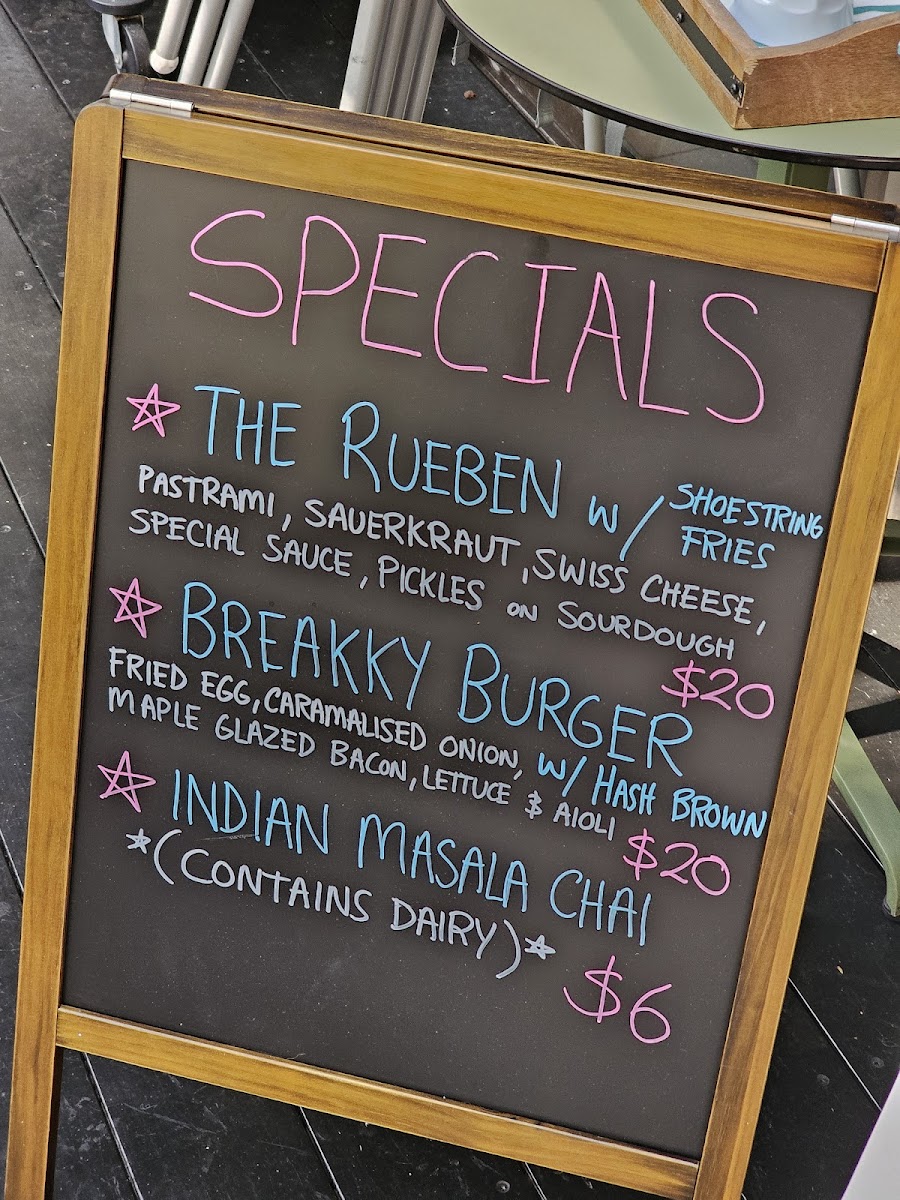 SPECIALS
THE RUEBEN w/ SHOESTRING FRIES
PASTRAMI, SAUERKRAUT, SWISS CHEESE,
SPECIAL SAUCE, PICKLES ON SOURDOUGH
$20
BREAKKY BURGER
w/ HASH BROWN
FRIED EGG, CARAMALISED ONION,
MAPLE GLAZED BACON, LETTUCE & AIOLI
$20
INDIAN MASALA CHAI
*(CONTAINS DAIRY)*
$6